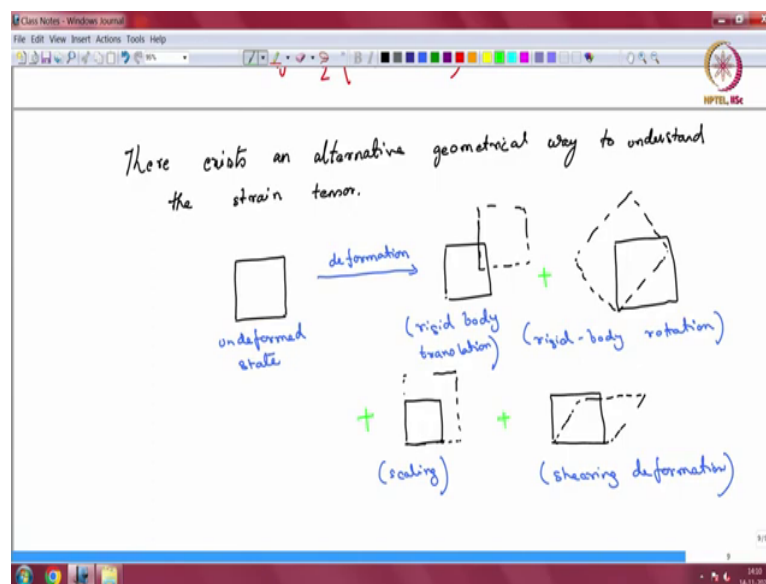 Class Notes - Windows Journal
File Edit View Insert Actions Tools Help
NPTEL, IISc
There exists an alternative geometrical way to understand
the strain tensor.
deformation
undeformed
state
(rigid body
translation)
+
(rigid-body rotation)
+
(scaling)
+
(shearing deformation)
9
14:10